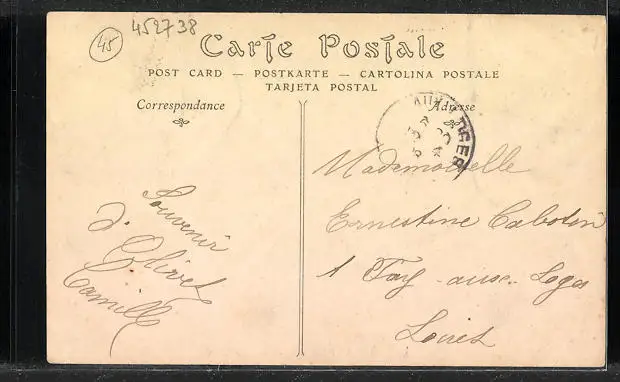 45
452738
Carte Postale
POST CARD — POSTKARTE — CARTOLINA POSTALE
TARJETA POSTAL
Correspondance
Adresse
Souvenir
d'Olivet
Camille
Mademoiselle
Ernestine Cabotin
à Fay-aux-Loges
Loiret